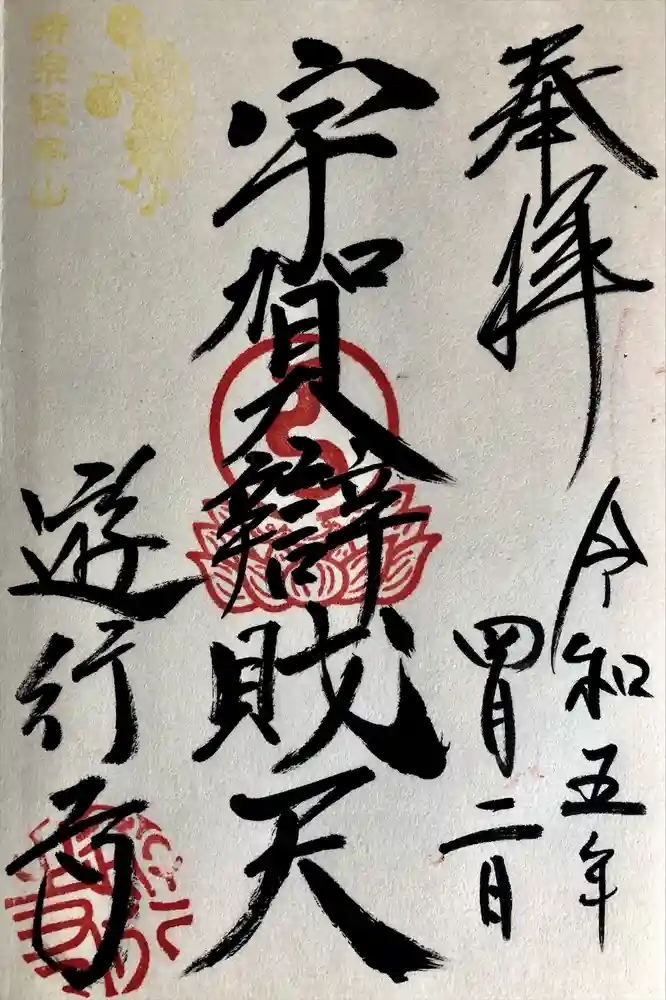 奉拝
令和五年
四月二日
宇賀辯財天
遊行寺